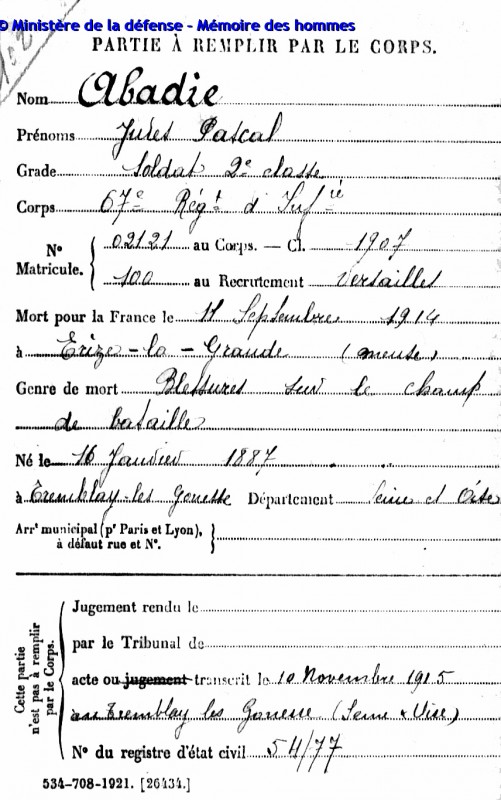 © Ministère de la défense - Mémoire des hommes
PARTIE À REMPLIR PAR LE CORPS.
Nom Abadie
Prénoms Jules Pascal
Grade Soldat 2e classe
Corps 67e Régt d'Infie
No Matricule. 02121 au Corps. — Cl. 1907
100 au Recrutement Versailles
Mort pour la France le 11 Septembre 1914
à Erize-la-Grande (meuse)
Genre de mort Blessures sur le champ
de bataille
Né le 16 Janvier 1887
à Tremblay-les Gonesse Département Seine et Oise
Arrt municipal (pr Paris et Lyon),
à défaut rue et No.
Cette partie n'est pas à remplir par le Corps.
Jugement rendu le
par le Tribunal de
acte ou jugement transcrit le 10 Novembre 1915
Tremblay les Gonesse (Seine & Oise)
No du registre d'état civil 54/77
534-708-1921. [26434.]